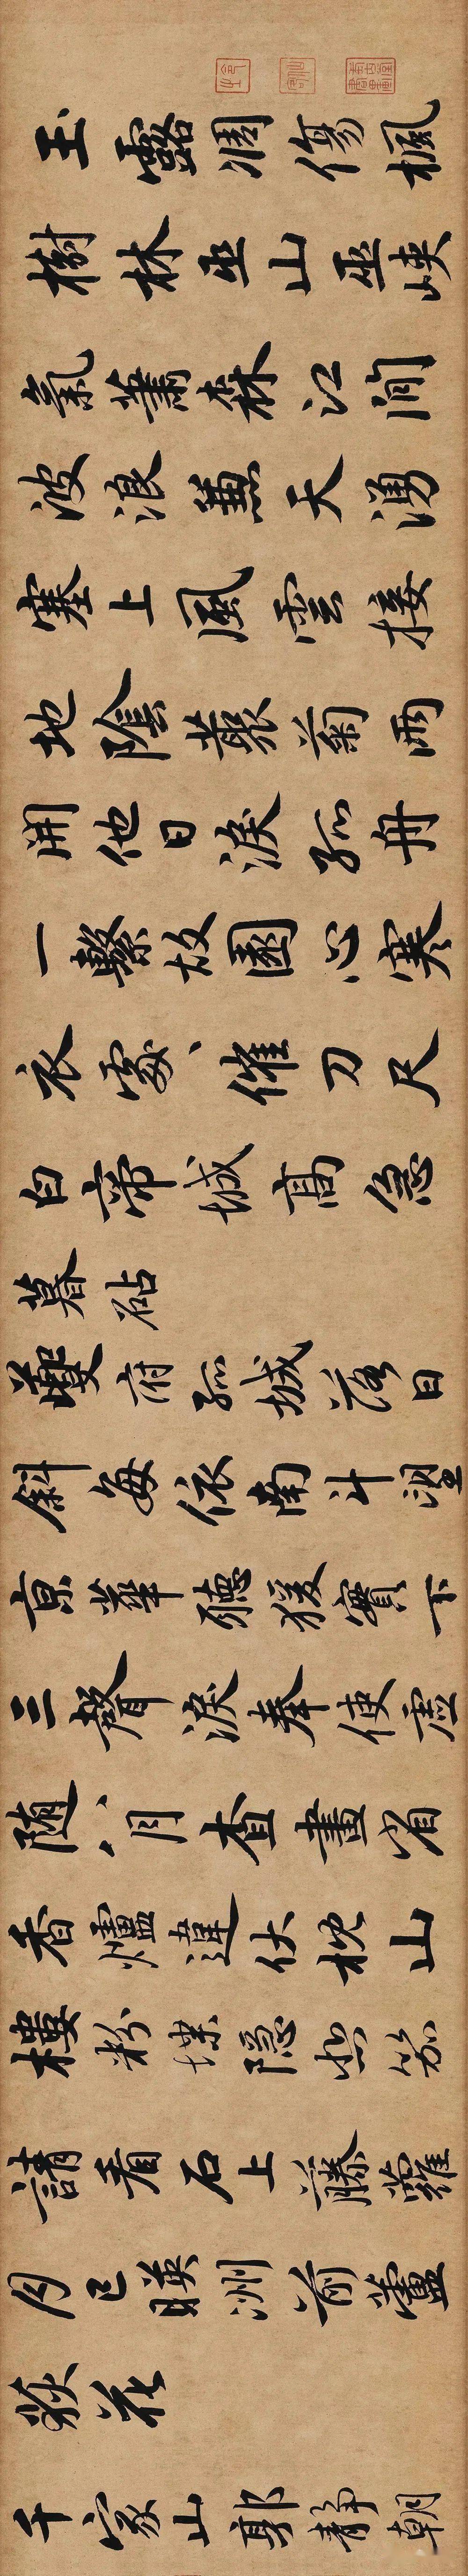 玉露凋傷楓
樹林巫山巫峽
氣蕭森江間
波浪兼天湧
塞上風雲接
地陰叢菊兩
開他日淚孤舟
一繫故園心寒
衣處〻催刀尺
白帝城高急
暮砧
夔府孤城落日
斜每依南斗望
京華聽猨實下
三聲淚奉使虛
随八月查畫省
香爐違伏枕山
樓粉堞隱悲笳
請看石上藤蘿
月已映洲前蘆
荻花
千家山郭静朝